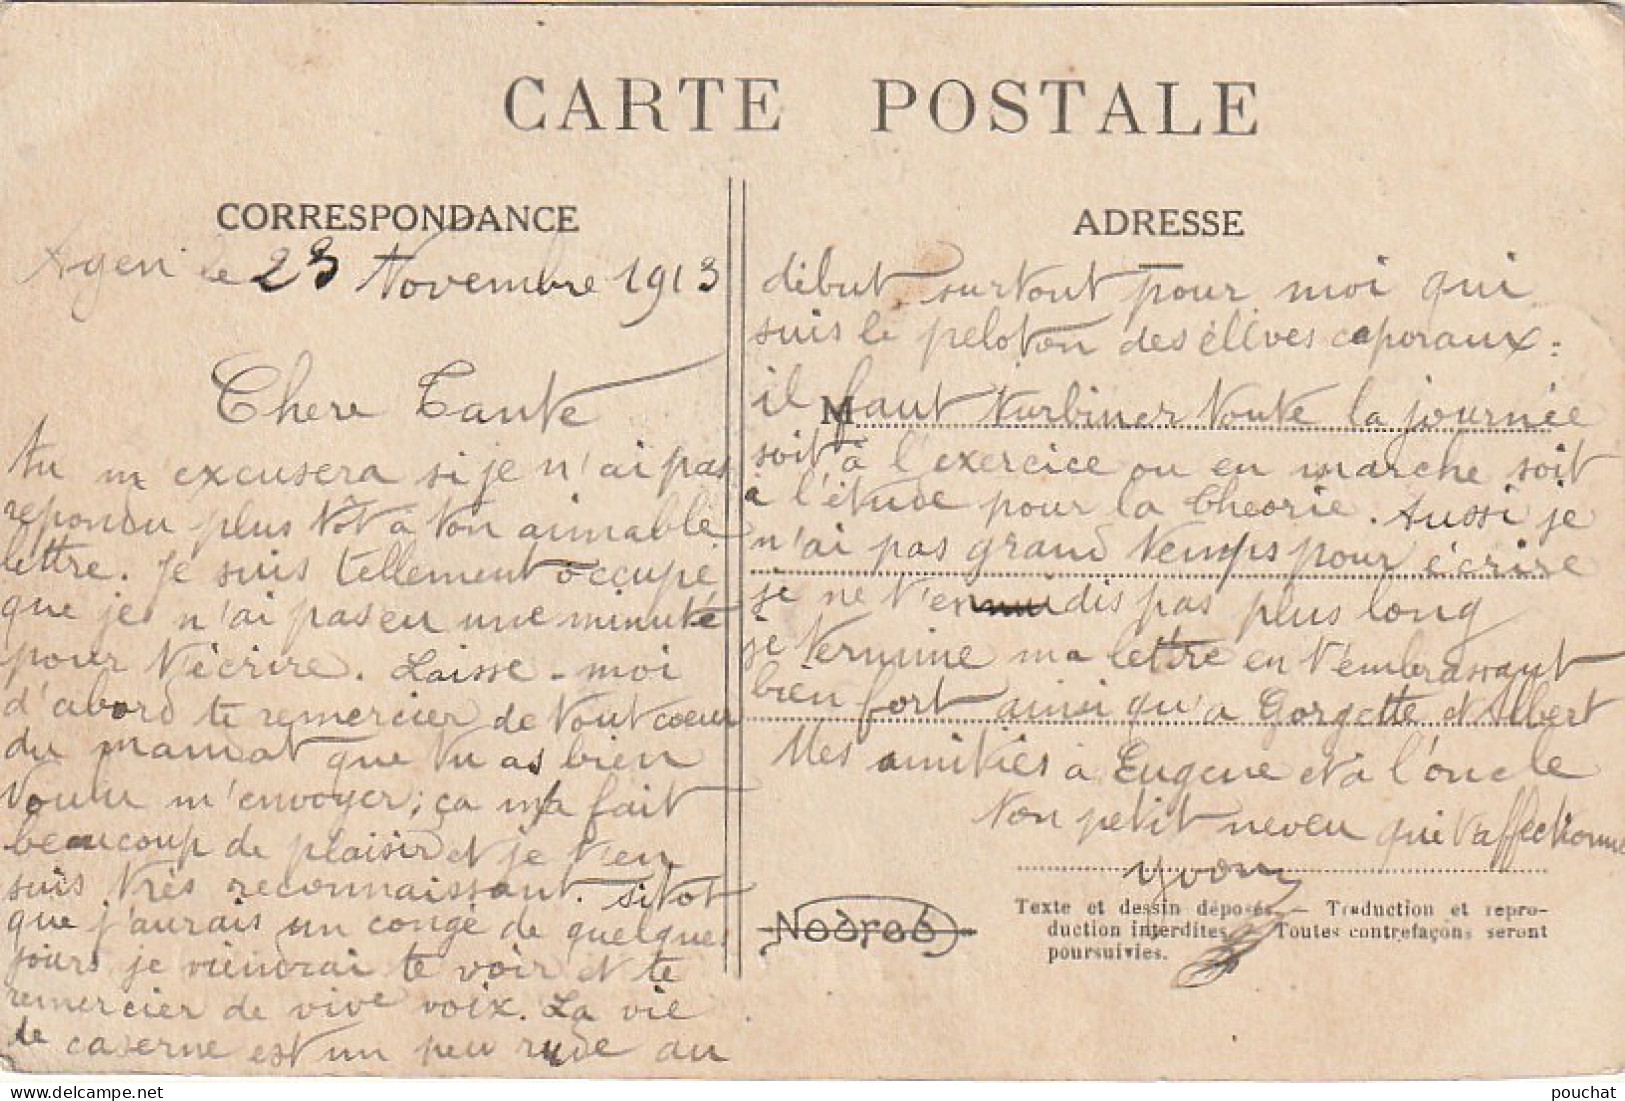 CARTE POSTALE
CORRESPONDANCE
Agen le 23 Novembre 1913
Chere Tante
tu m'excusera si je n'ai pas
repondu plus tôt à ton aimable
lettre. Je suis tellement occupé
que je n'ai pas eu une minute
pour t'écrire. Laisse-moi
d'abord te remercier de tout coeur
du mandat que tu as bien
voulu m'envoyer; ça m'a fait
beaucoup de plaisir et je t'en
suis très reconnaissant. sitot
que j'aurais un congé de quelques
jours je viendrai te voir et te
remercier de vive voix. La vie
de caserne est un peu rude au
ADRESSE
début surtout pour moi qui
suis le peloton des élèves caporaux:
il faut turbiner toute la journée
M
soit à l'exercice ou en marche soit
à l'étude pour la théorie. Aussi je
n'ai pas grand temps pour écrire
je ne t'en dis pas plus long
je termine ma lettre en t'embrassant
bien fort ainsi qu'a Gorgette et Albert
Mes amitiés à Eugene et à l'oncle
ton petit neveu qui t'affectionne
Yvon
Nodreb
Texte et dessin déposés. — Traduction et repro-
duction interdites. — Toutes contrefaçons seront
poursuivies.
pouchat